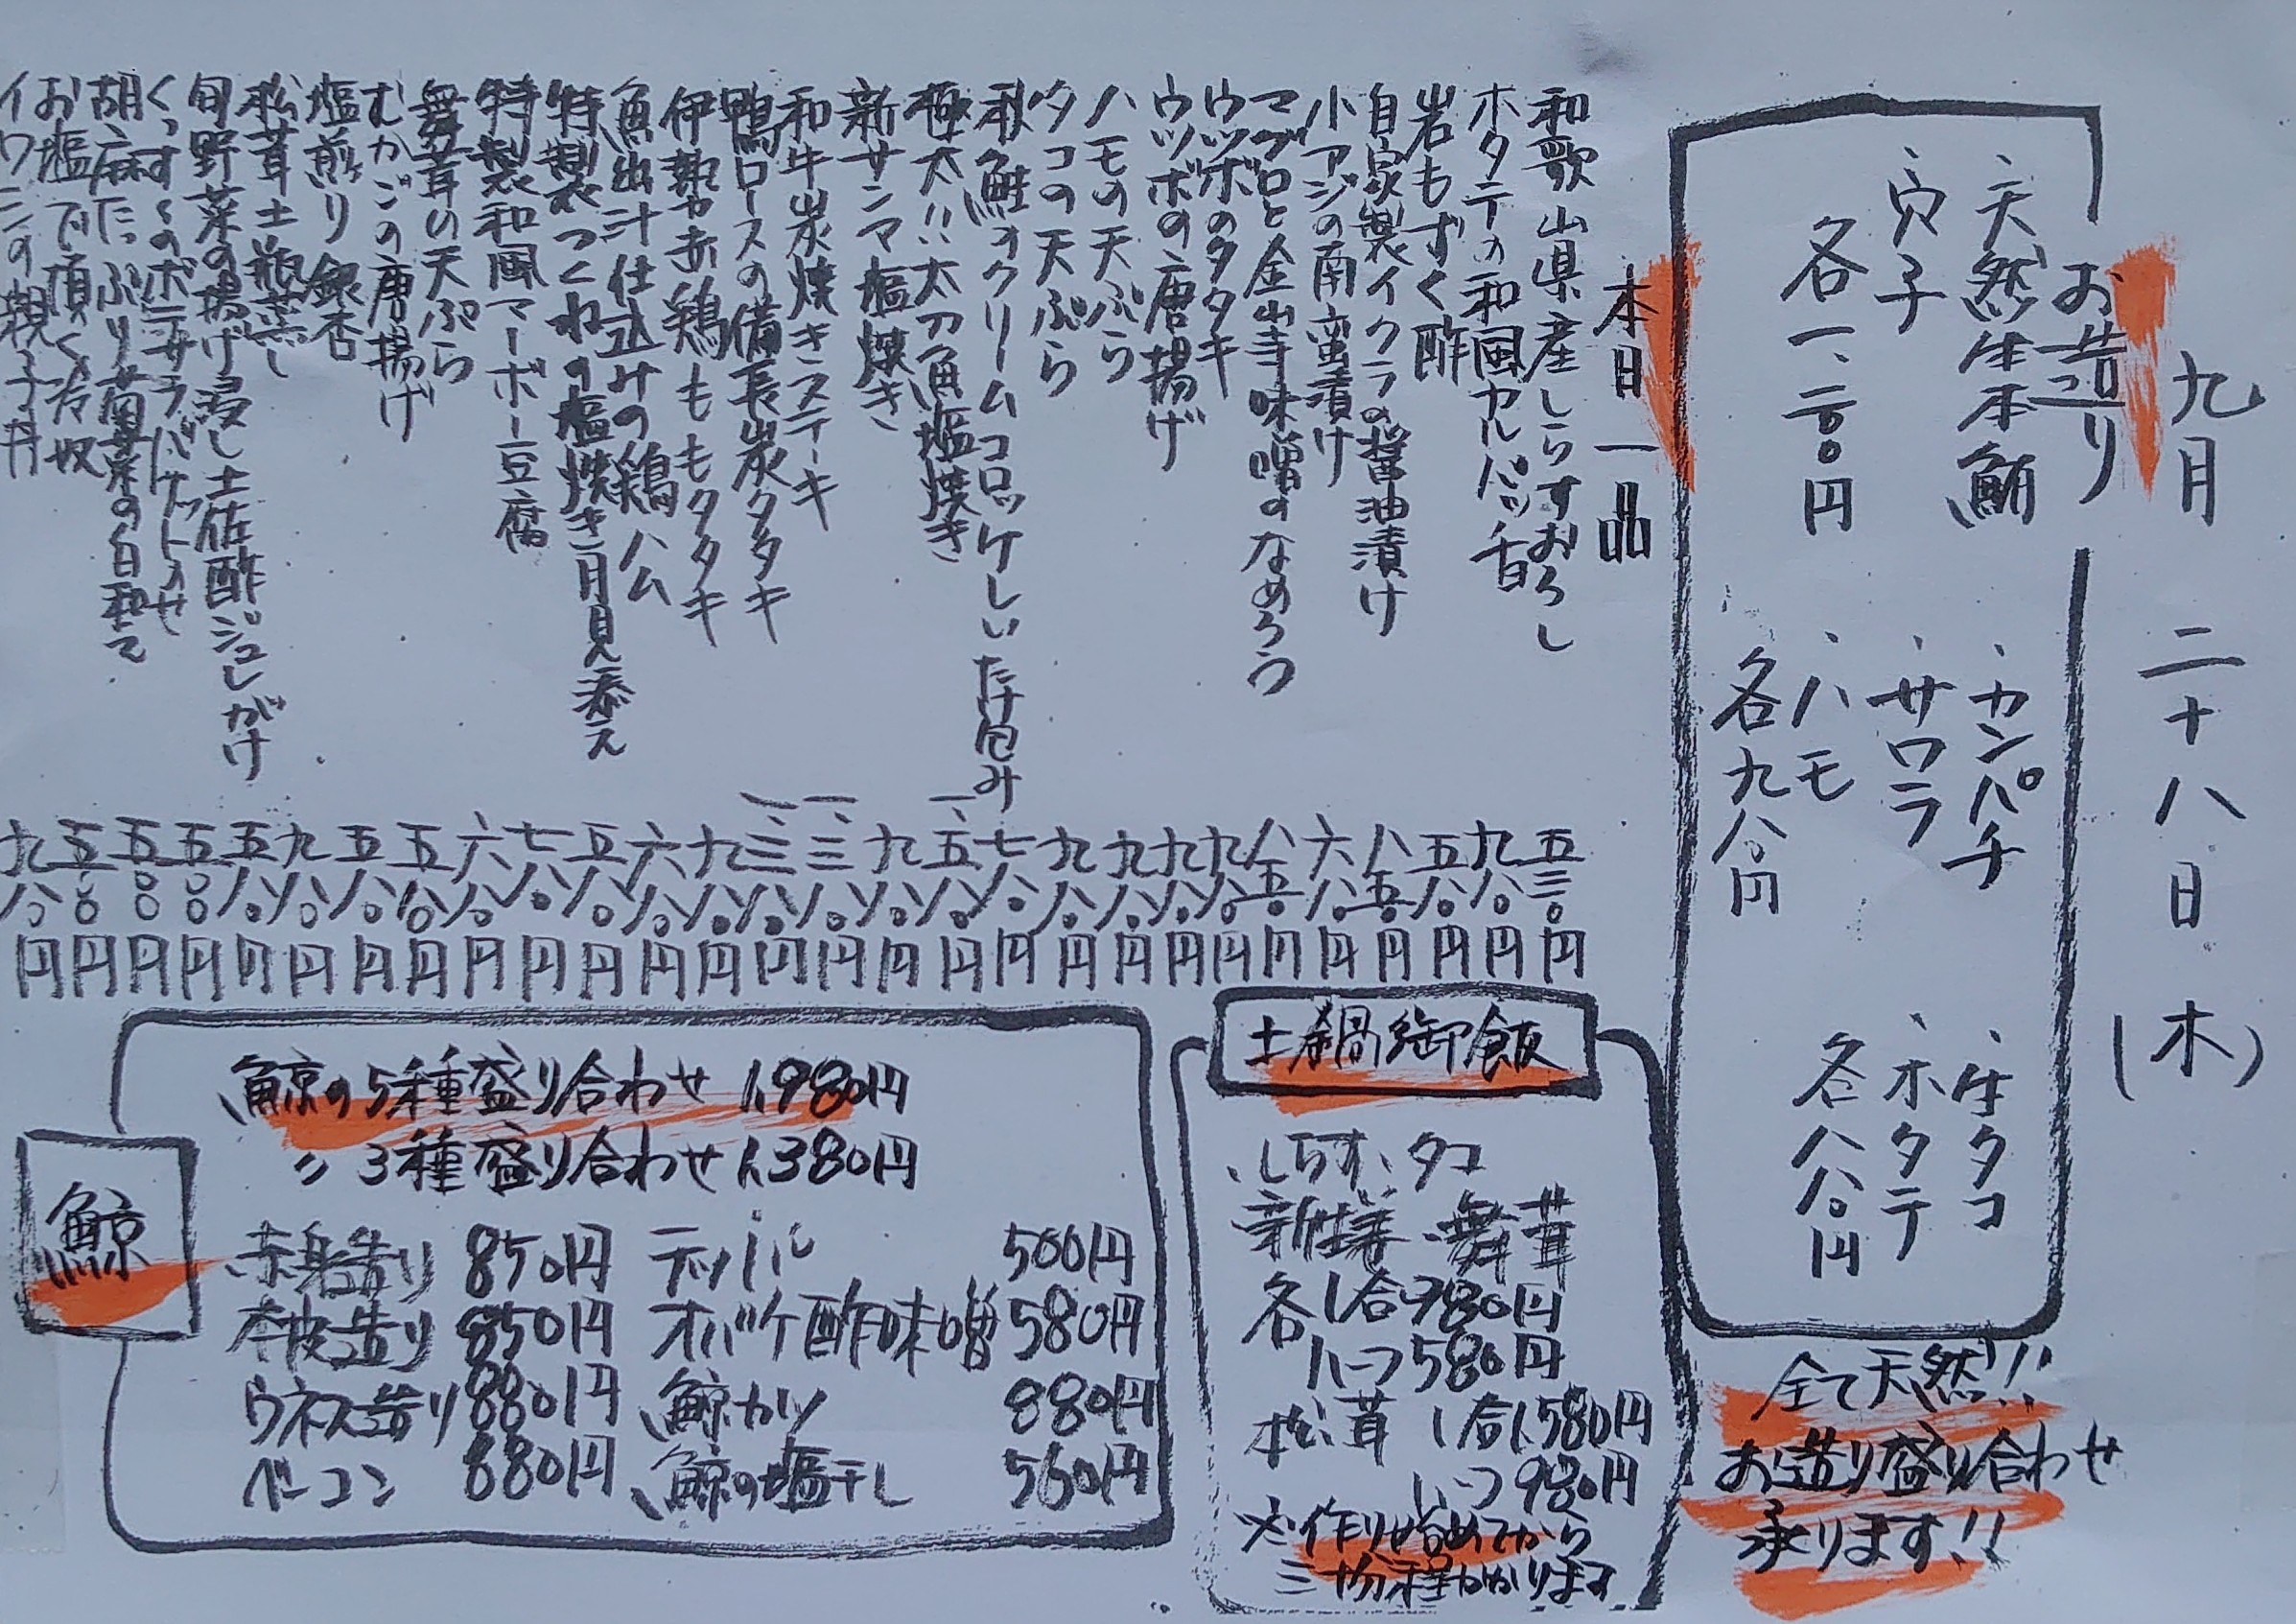 九月二十八日(木)
お造り
・天然生本鮪
・穴子
各一、二八〇円
・カンパチ
・サワラ
・ハモ
各九八〇円
・生タコ
・ホタテ
各八八〇円
全て天然!!
お造り盛り合わせ
承ります!!
本日一品
和歌山県産しらすおろし 五三〇円
ホタテの和風カルパッチョ 九八〇円
岩もずく酢 五八〇円
自家製イクラの醤油漬け 八五〇円
小アジの南蛮漬け 六八〇円
マグロと金山寺味噌のなめろう 八五〇円
ウツボのタタキ 九八〇円
ウツボの唐揚げ 九八〇円
ハモの天ぷら 九八〇円
タコの天ぷら 九八〇円
秋鮭のクリームコロッケしいたけ包み 七八〇円
極太!!太刀魚塩焼き 一、五八〇円
新サンマ塩焼き 九八〇円
和牛炭焼きステーキ 一、三八〇円
鴨ロースの備長炭タタキ 一、三八〇円
伊勢赤鶏ももタタキ 九八〇円
魚出汁仕込みの鶏ハム 六八〇円
特製つくねの塩焼き月見添え 五八〇円
特製和風マーボー豆腐 七八〇円
舞茸の天ぷら 六八〇円
むかごの唐揚げ 五八〇円
塩煎り銀杏 五八〇円
松茸土瓶蒸し 九八〇円
旬野菜の揚げ浸し土佐酢ジュレがけ 五八〇円
くつすくのポテサラバケットのせ 五五〇円
胡麻たっぷり菊菜の白和え 五五〇円
お塩で頂く冷奴 五五〇円
イワシの親子丼 九八〇円
土鍋御飯
・しらす・タコ
・新生姜・舞茸
各1合980円
ハーフ580円
松茸 1合1,580円
ハーフ980円
※作り始めてから
三十分程かかります
鯨
鯨の5種盛り合わせ 1,980円
〃3種盛り合わせ 1,380円
赤身造り 850円 テッパン 500円
本皮造り 850円 オバケ酢味噌 580円
ウネス造り 880円 鯨カツ 880円
ベーコン 880円 鯨の塩干し 560円